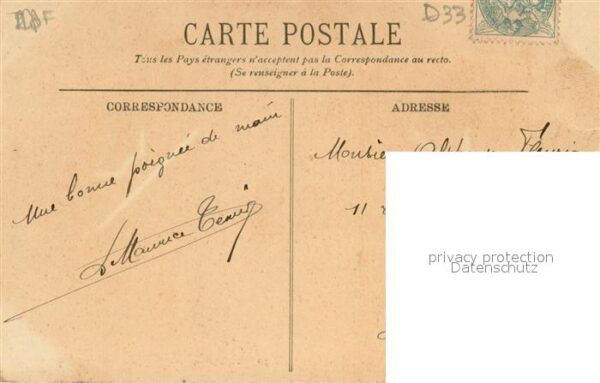 D33
CARTE POSTALE
Tous les Pays étrangers n'acceptent pas la Correspondance au recto.
(Se renseigner à la Poste).
CORRESPONDANCE
ADRESSE
Une bonne poignée de main
Maurice
Monsie
11
privacy protection
Datenschutz